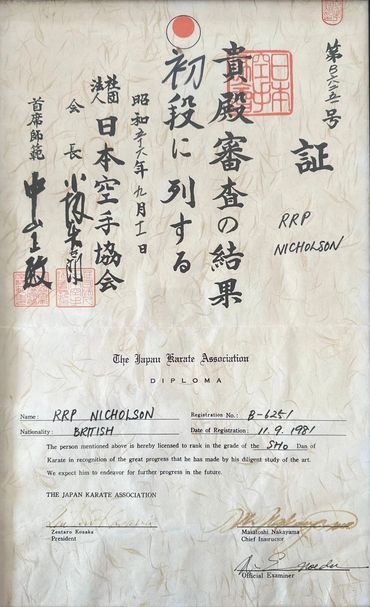 第B六二五一号
証
RRP
NICHOLSON
貴殿審査の結果
初段に列する
昭和五十六年九月十一日
社団法人 日本空手協会
会長
首席師範 中山正敏
The Japan Karate Association
DIPLOMA
Name: RRP NICHOLSON Registration No.: B-6251
Nationality: BRITISH Date of Registration: 11.9.1981
The person mentioned above is hereby licensed to rank in the grade of the SHO Dan of
Karate in recognition of the great progress that he has made by his diligent study of the art.
We expect him to endeavor for further progress in the future.
THE JAPAN KARATE ASSOCIATION
Zentaro Kosaka
President
Masatoshi Nakayama
Chief Instructor
Official Examiner